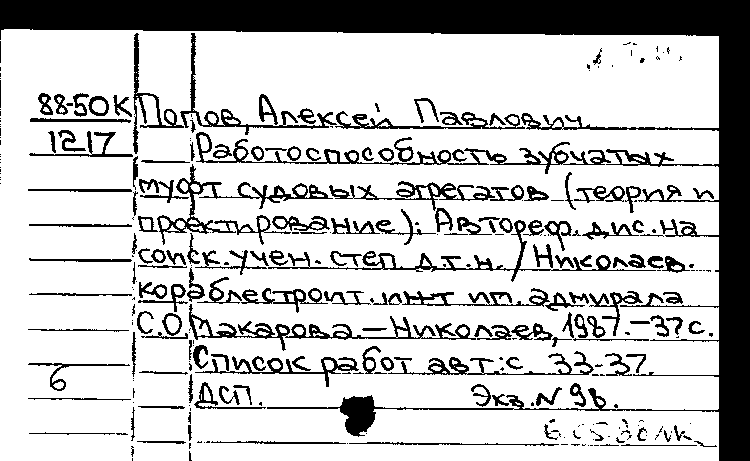 д.т.н.
88-50К Попов, Алексей Павлович.
1217 Работоспособность зубчатых
муфт судовых агрегатов (теория и
проектирование): Автореф. дис. на
соиск. учен. степ. д.т.н. / Николаев.
кораблестроит. ин-т им. адмирала
С.О. Макарова.—Николаев, 1987.—37 с.
Список работ авт.: с. 33-37.
6
ДСП. Экз. N 96.